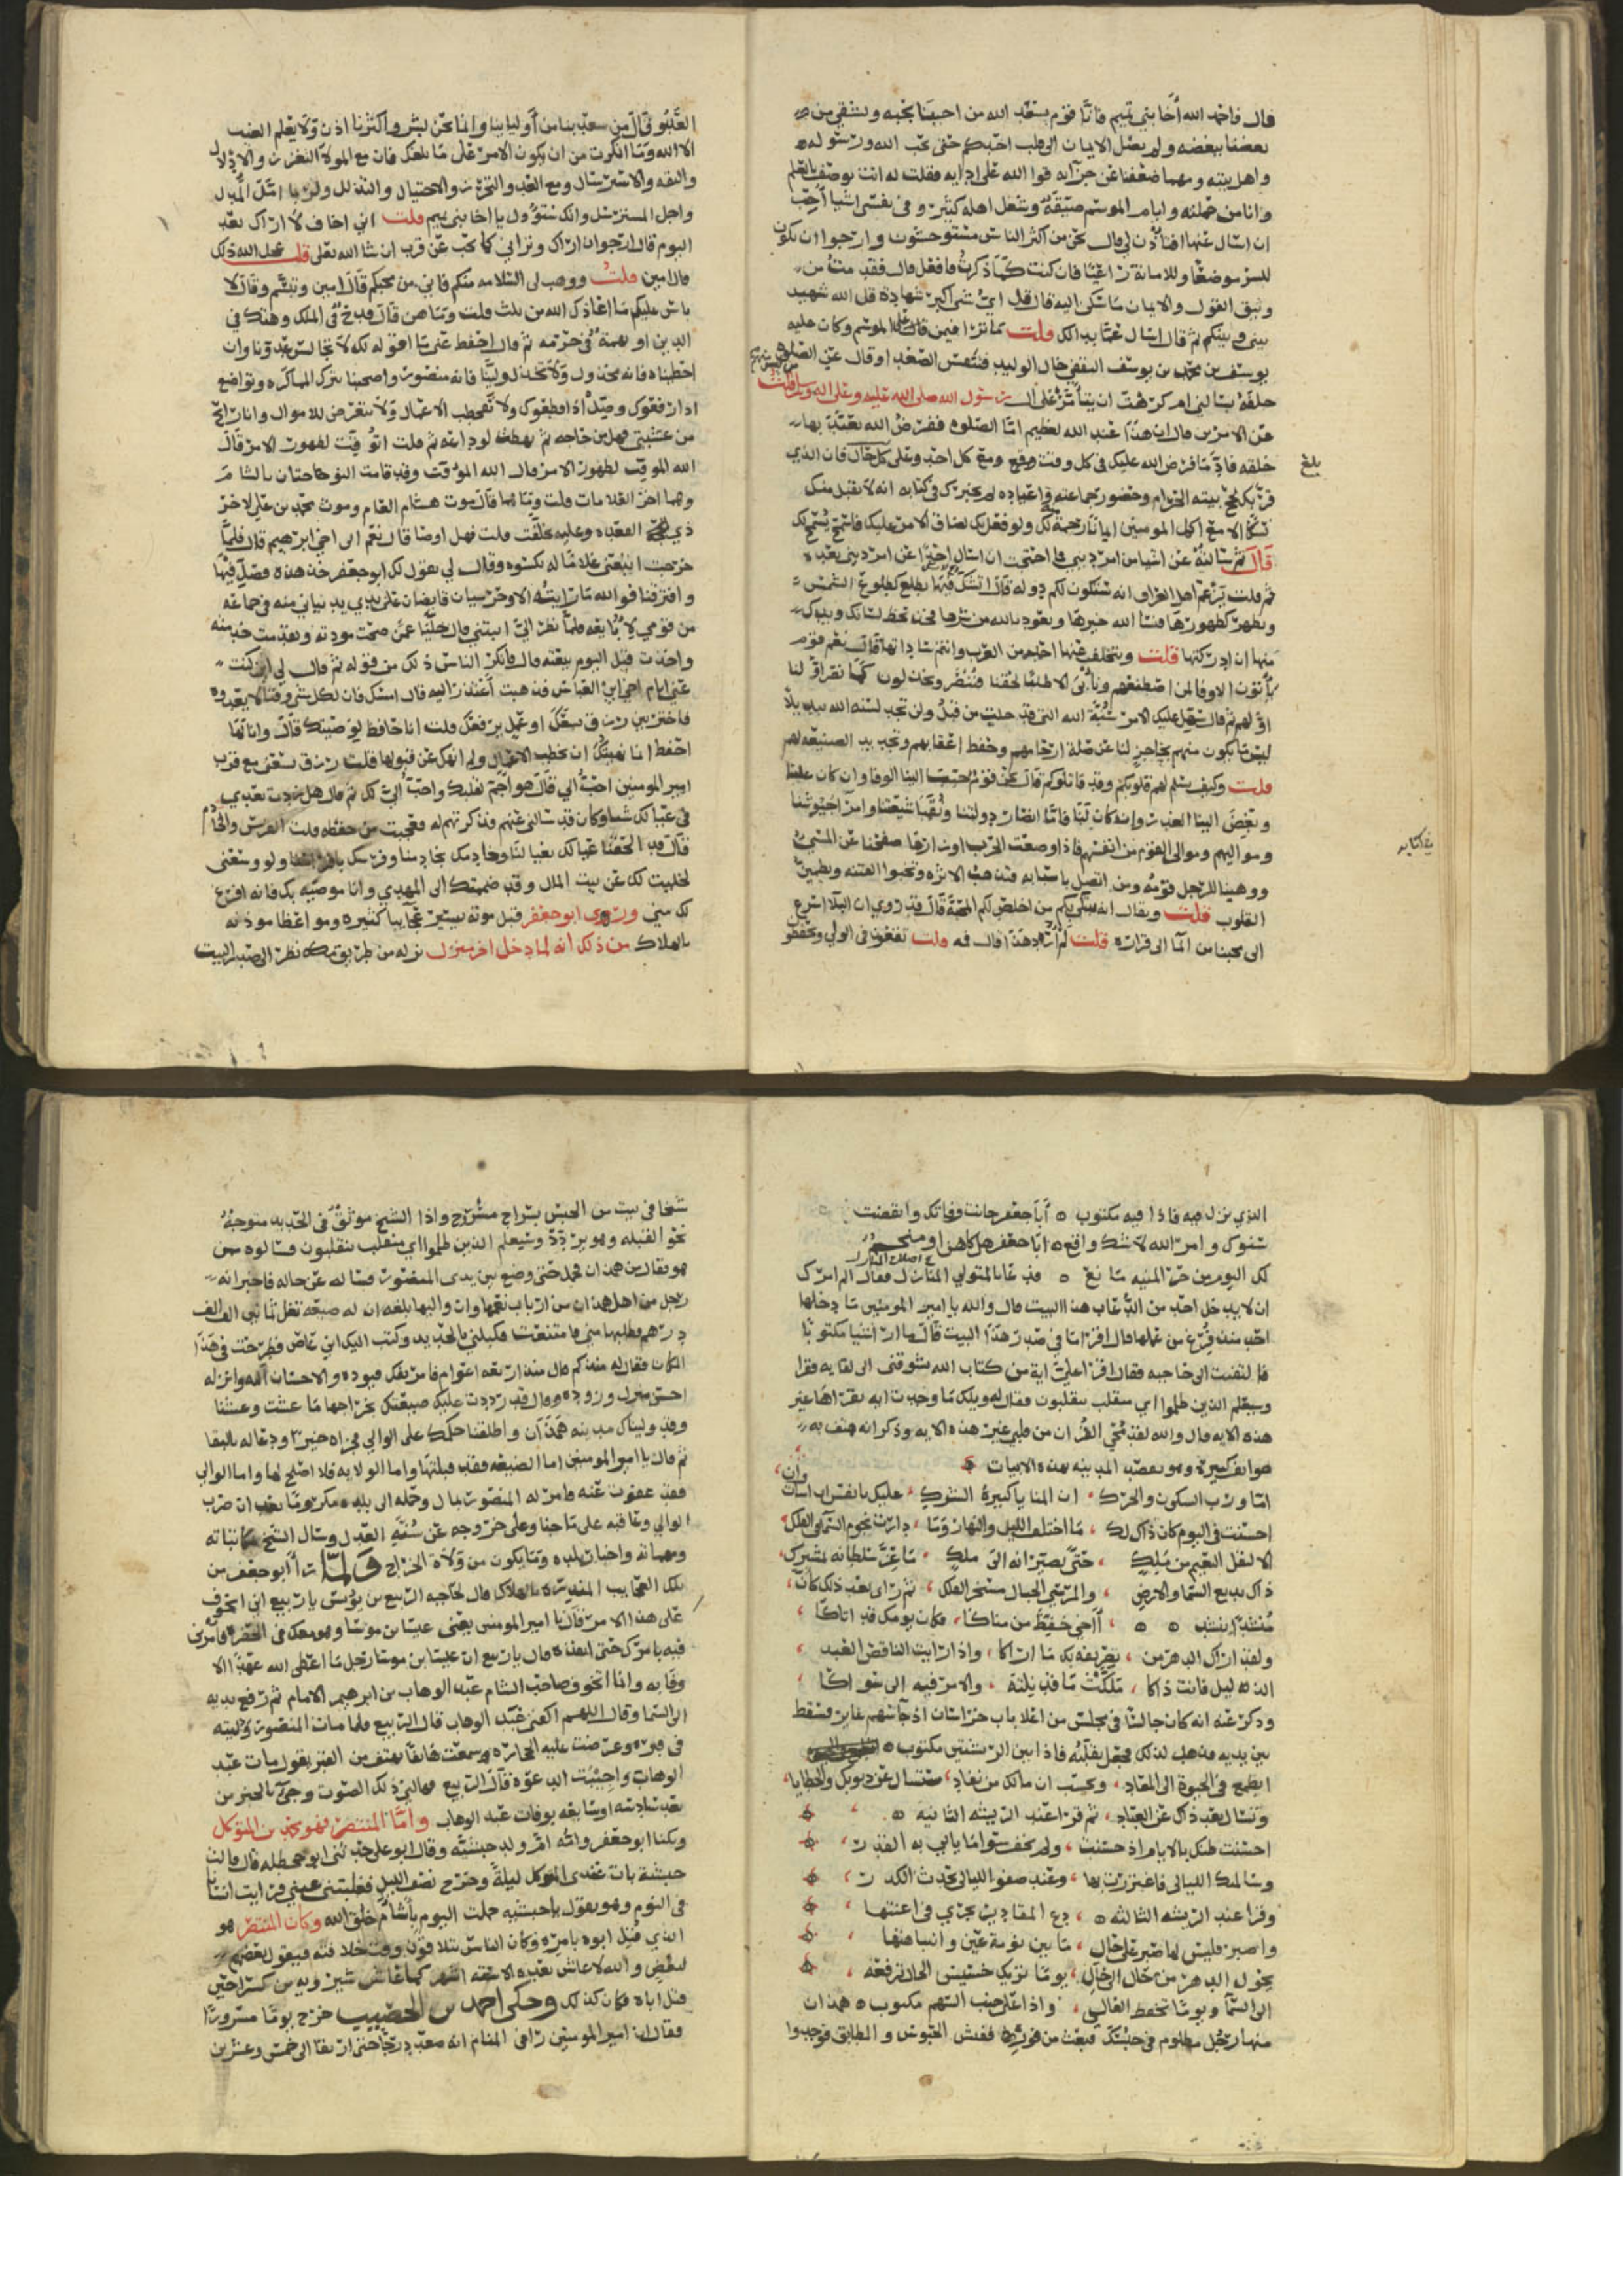 قال فاحمد الله أخا بني تميم فانا قوم يسعد الله من احبنا بحبه ويشقي من
بعضنا ببغضه ولن يصل الايمان الى قلب احدكم حتى يحب الله ورسوله
واهل بيته ومهما ضعفنا عن جزآيه قوا الله على ادايه فقلت له انت توصف بالعلم
وانا من حملته وايام الموسم ضيقة وشغل اهله كثير وفي نفسي اشيا أحب
ان اسال عنها افتاذن لي قال نحن من اكثر الناس مستوحشون وارجوا ان تكون
للسر موضعا وللامانة راعيا فان كنت كما ذكرت فافعل قال فقدمت من
وثيق القول والايمان ما سكن اليه فقال قل اي شي اكبر شهادة قل الله شهيد
بيني وبينكم ثم قال اسال عما بدالك قلت ما ترا فيمن قال على الموسم وكان عليه
يوسف بن محمد بن يوسف الثقفي خال الوليد فتنفس الصعدا وقال عن الصلوة
خلفه تسالني ام كرهت ان يتأمر على آل رسول الله صلى الله عليه وعلى اله وسلم قلت
عن الامرين قال ان هذا عند الله لعظيم امّا الصلوه ففرض الله تعبّد بها
خلقه فادّ ما فرض الله عليك في كل وقت ومع كل احد وعلى كل حال فان الذي
بلغ
ندبك لحج بيته الحرام وحضور جماعته واعياده لم يخبرك في كتابه انه لا يقبل منك
نسكا الا مع اكمل المومنين ايمانا رحمة لك ولو فعل بك لضاق الامر عليك فاسمح يسمح لك
قال ثم سالته عن اشيا من امر ديني فما احتجت ان اسال احدا عن امر ديني بعده
ثم قلت يزعم اهل العراق انه ستكون لكم دوله قال لا شك فيها تطلع كطلوع الشمس
وتظهر كظهورها فنسا الله خيرها ونعوذ بالله من شرها فخذ بحظ لسانك ويدك
منها ان ادركتها قلت ويتخلف عنها احد من العرب وانتم ساداتها قال نعم قوم
يأتون الا وفا لمن اصطنعهم ونأبى الا طلبا لحقنا فننصر ويخذلون كما نصر اولنا
اولهم ثم قال سهل عليك الامر سنة الله التي قد خلت من قبل ولن تجد لسنة الله تبديلا
ليس ما يكون منهم بحاجز لنا عن صلة ارحامهم وحفظ اعقابهم وتجديد الصنيعه لهم
قلت وكيف تسلم لهم قلوبكم وقد قاتلوكم قال نحن قوم حبب الينا الوفا وان كان علينا
وبغض الينا الغدر وانه كان لنا فاما انصار دولتنا ونقبا شيعتنا وامرآ جيوشنا
ومواليهم وموالي القوم من انفسهم فاذا وضعت الحرب اوزارها صفحنا عن المسي
ووهبنا للرجل قومه ومن اتصل باسبابه فتذهب الاثره وتخبوا الفتنه وتطمين
القلوب قلت ويقال انه يبتلى بكم من اخلص لكم المحبة قال قد روي ان البلآ اسرع
الى محبنا من المآ الى قراره قلت لم أرد هذا قال فمه قلت تعفون في الولي وتحظو
العدو قال من سعد بنا من أوليابنا وانما نحن بشر واكثرنا اذن ولا يعلم الغيب
الا الله وما انكرت من ان يكون الامر على ما بلغك فان مع المولا التعزز والادلال
والثقه والاسترسال ومع العدو التحرز والاحتيال والتذلل وربما امل المدل
واجل المسترسل وانك لتئول يا اخا بني تميم قلت اني اخاف لا اراك بعد
اليوم قال ارجوا ان اراك وتراني كما تحب عن قريب ان شا الله تعلى قلت عجل الله ذلك
قال امين قلت ووهب لي السلامه منكم فاني من محبكم قال امين وتبسم وقال لا
باس عليكم ما اعاذك الله من ثلث قلت وما هن قال قدح في الملك وهتك في
الدين او تهمة في حرمه ثم قال احفظ عني ما اقوله لك لا تجالس عدونا وان
احظيناه فانه مخذول ولا تخذل ولينا فانه منصور واصحبنا بترك المماكره وتواضع
اذا رفعوك وصل اذا قطعوك ولا تخطب الاعمال ولا تتعرض للاموال وانا رايح
من عشيتي فهل من حاجه ثم نهضت لوداعه ثم قلت اتوقت لظهور الامر قال
الله الموقت لظهور الامر قال الله الموقت وقد قامت النوحاحتان بالشام
وهما اخر العلامات قلت وما هما قال موت هشام العام وموت محمد بن علي لاخر
ذي القعده وعليه تخلفت قلت فهل اوصا قال نعم الى اخي ابرهيم قال فلما
خرجت اتبعني غلاما له بكسوه وقال لي يقول لك ابو جعفر خذ هذه وصل فيها
وافترقنا فوالله ما رايته الا وحرسيان قابضان على يدي يدنياني منه في جماعه
من قومي لابايعه فلما نظر الي اثبتني قال خليا عمن صحت مودته وتقدمت خدمته
واخذت قبل اليوم بيعته قال فاكبر الناس ذلك من قوله ثم قال لي اين كنت
عني ايام اخي ابي العباس فذهبت أعتذر اليه قال امسك فان لكل شي وقتا لا يعدوه
فاختر بين رزق يسعك او عمل يرفعك قلت انا حافظ لوصيتك قال وانا لها
احفظ انما نهيتك ان تخطب الاعمال ولم انهك عن قبولها قلت رزق يسعني مع قرب
امير المومنين احب الي قال هو اجم لقلبك واحب الي لك ثم قال هل زدت بعدي
في عيالك شيا وكان قد سالني عنهم فذكرتهم له فعجبت من حفظه قلت الفرس والخادم
فقال قد الحقنا عيالك بعيالنا وخادمك بخادمنا وفرسك بافراسنا ولو وسعني
لخليت لك عن بيت المال وقد ضممتك الى المهدي وانا موصيه بك فانه افرغ
لك مني وروى ابو جعفر قبل موته بيسير عجايبا كثيره ومواعظا موذنه
بالهلاك من ذلك انه لما دخل اخر منزل نزله من طريق مكه نظر الى صدر البيت
الذي نزل فيه فاذا فيه مكتوب ه أبا جعفر حانت وفاتك وانقضت
سنوك وامر الله لا شك واقع ه ابا جعفر هل كاهن او منجم
لك اليوم من حر المنيه مانع ه فدعا بالمتولي المنازل فقال الم امرك
ان لا يدخل احد من الدعاب هذا البيت قال والله يا امير المومنين ما دخلها
احد منذ فرغ من عملها قال اقرا ما في صدر هذا البيت قال ما ارا شيا مكتوبا
فالتفت الى حاجبه فقال اقرا علي اية من كتاب الله يشوقني الى لقايه فقرا
وسيعلم الذين ظلموا اي منقلب ينقلبون فقال له ويلك ما وجدت ايه تقراها غير
هذه الايه قال والله لقد محي القرآن من قلبي غير هذه الايه وذكر انه هتف به
هواتف كثيرة وهو بقصر المدينه بهذه الابيات
اما ورب السكون والحرك ، ان المنايا كثيرة الشرك ، عليك يا نفس ان اسات وان
احسنت في اليوم كان ذاك لك ، ما اختلف الليل والنهار وما ، دارت نجوم السمآ في الفلك
الا لنقل النعيم من ملك ، حتى يصيرانه الى ملك ، ما عز سلطانه بمشترك
ذاك بديع السما والارض ، والمرسي الجبال مسخر الفلك ، ثم راى بعد ذلك كان
منشدا ينشد ه ه أأخي خفيظ من مناكا ، فكان يومك قد اتاكا
ولقد اراك الدهر من ، تصريفه بك ما اراكا ، واذا رايت الناقص العبد
الذليل فانت ذاكا ، ملكت ما قد نلته ، والامر فيه الى سواكا
وذكر عنه انه كان جالسا في مجلس من اعلا باب خراسان اذ جآ سهم عاير فسقط
بين يديه فذهل لذلك فجعل يقلبه فاذا بين الريشتين مكتوب ه
ايطمع في الحيوة الى المعاد ، وتحسب ان مالك من نفاد ، ستسال عن ذنوبك والخطايا
وتسال بعد ذاك عن العباد ، ثم قرا عند الريشه الثانيه ه
احسنت ظنك بالايام اذ حسنت ، ولم تخف سوا ما ياتي به القدر
وسالمتك الليالي فاغتررت بها ، وعند صفو الليالي يحدث الكدر
وقرا عند الريشه الثالثه ه ، دع المقادير تجري في اعنتها
واصبر فليس لها صبر على حال ، ما بين نومة عين وانتباهتها
يحول الدهر من حال الى حال ، يوما تريك خسيس الحال ترفعه
الى السما ويوما تخفض العالي ، واذا على جنب السهم مكتوب ه همذان
منها رجل مظلوم في حبسك فبعث من فوره ففتش الحبوس والمطابق فوجدوا
شيخا في بيت من الحبس بسراج مسرج واذا الشيخ موثق في الحديد متوجه
نحو القبله وهو يردد وسيعلم الذين ظلموا اي منقلب ينقلبون فسالوه من
هو فقال من همذان فحمل حتى وضع بين يدي المنصور فساله عن حاله فاخبرانه
رجل من اهل همذان من ارباب نعمها وان واليها بلغه ان له ضيعه تغل ثماني الف الف
درهم فطلبها مني فامتنعت فكبلني بالحديد وكتب اليك اني عاص فطرحت في هذا
المكان فقال له منذ كم قال منذ اربعه اعوام فامر بفك قيوده والاحسان اليه وانزله
احسن منزل وزوده وقال قد رددت عليك ضيعتك بخراجها ما عشت وعشنا
وقد وليناك مدينه همذان واطلقنا حكمك على الوالي فجزاه خيرا ودعا له بالبقا
ثم قال يا امير المومنين اما الضيعه فقد قبلتها واما الولايه فلا اصلح لها واما الوالي
فقد عفوت عنه فامر له المنصور بمال وحمله الى بلده مكرما بعد ان ضرب
الوالي وعاقبه على ما جنا وعلى خروجه عن سنه العدل وسال الشيخ مكاتباته
ومهماته واخبار بلده وما يكون من ولاة الخراج ولما رأ ابو جعفر من
تلك العجايب المنذره بالهلاك قال لحاجبه الربيع بن يونس يا ربيع اني اتخوف
على هذا الامر فقال يا امير المومنين يعني عيسا بن موسا وهو معك في الحضره فامرني
فيه بامرك حتى انفذه قال يا ربيع ان عيسا بن موسا رجل ما اعطى الله عهدا الا
وفا به وانما اتخوف صاحب الشام عبد الوهاب بن ابرهيم الامام ثم رفع يديه
الى السما وقال اللهم اكفني عبد الوهاب قال الربيع فلما مات المنصور وليته
في قبره وعرضت عليه الحجاره وسمعت هاتفا يهتف من القبر يقول مات عبد
الوهاب واجيبت الدعوه قال الربيع فهالني ذلك الصوت وجي بالخبر من
بعد سادسه او سابعه بوفات عبد الوهاب واما المنتصر فهو محمد بن المتوكل
ويكنا ابو جعفر وامه ام ولد حبشية وقال ابو علي حدثني ابو جحظه قال قالت
حبشة بات عندي المتوكل ليلة وخرج نصف الليل فغلبتني عيني فرايت انسانا
في النوم وهو يقول يا حبشيه حملت اليوم بأشأم خلق الله وكان المنتصر هو
الذي قتل ابوه بامره وكان الناس يتلاقون وقت خلافته فيقول بعضهم
لبعض والله لا عاش بعده الا سته اشهر كما عاش شيرويه بن كسرا حين
قتل اباه فكان كذلك وحكى احمد بن الخصيب خرج يوما مسرورا
فقال ان امير المومنين را في المنام انه صعد درجا حتى ارتقا الى خمس وعشرين